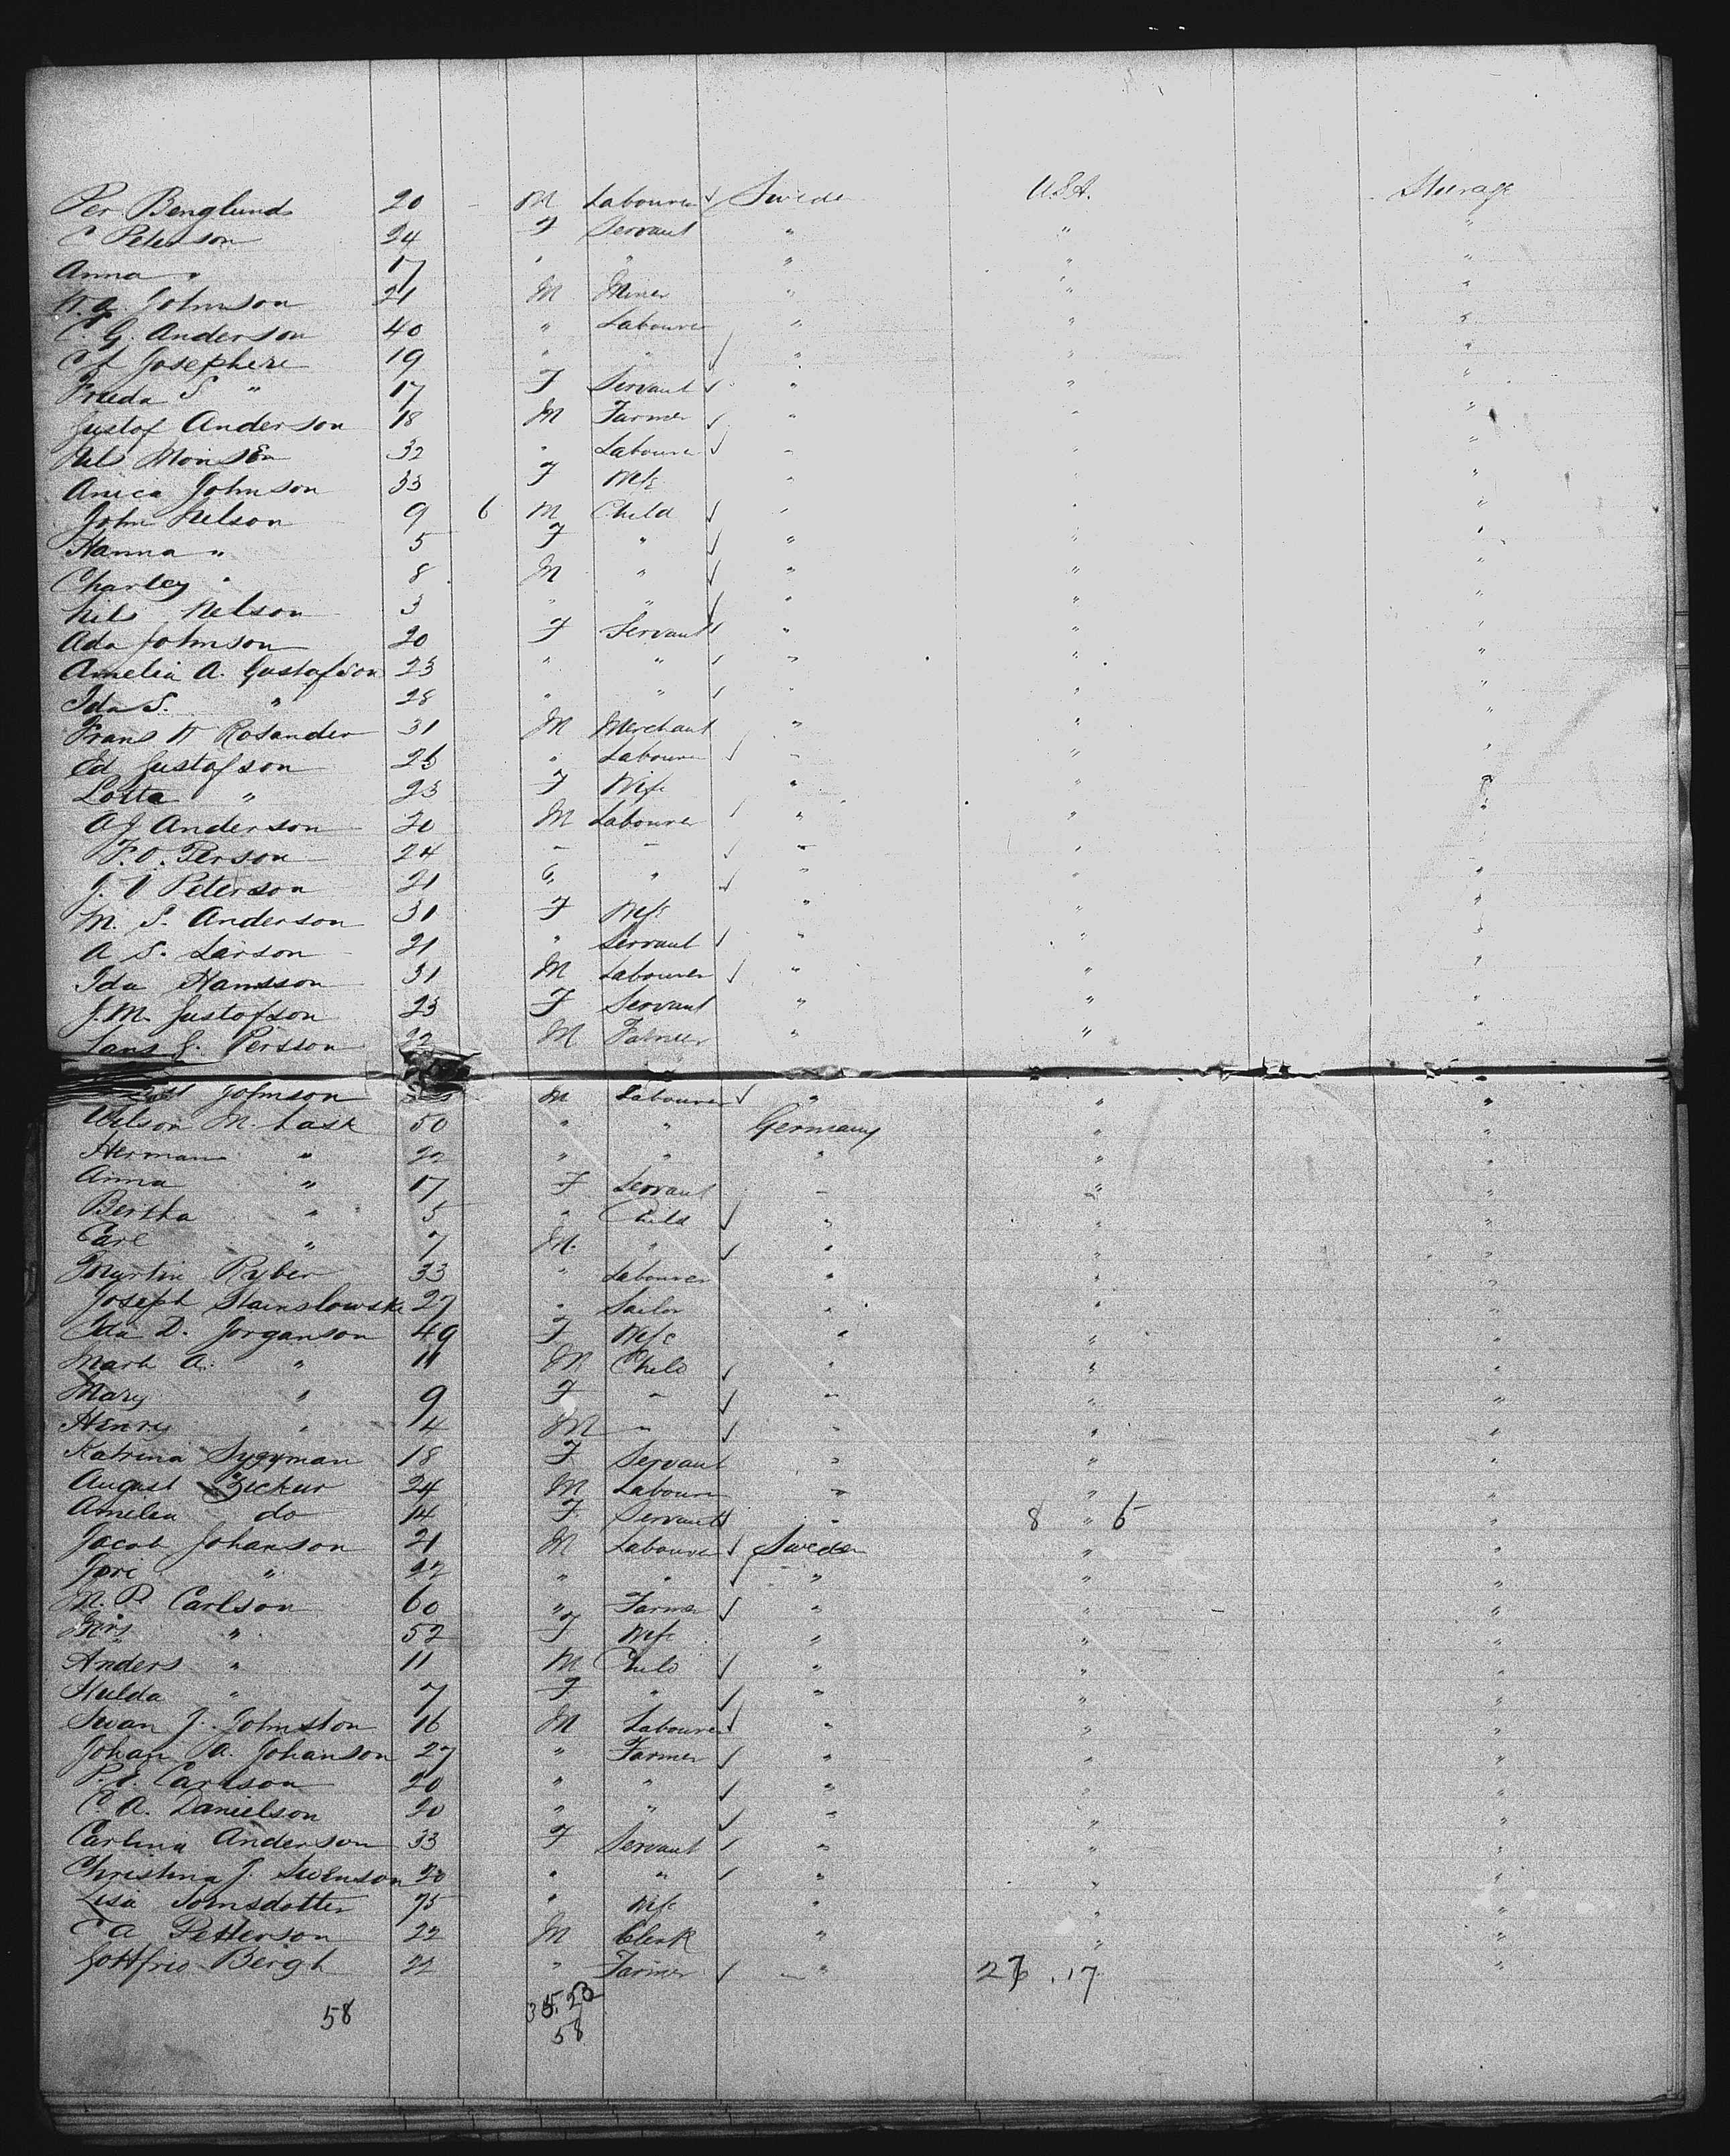 Per Benglund 20 - M Labourer Sweden U.S.A. Steerage
C Peterson 24 F Servant " " "
Anna " 17 " " " " "
N. A. Johnson 21 M Miner " " "
C. G. Anderson 40 " Labourer " " "
C f Josephere 19 " " " " "
Frieda S " 17 F Servant " " "
Gustof Anderson 18 M Farmer " " "
Nils Monson 32 " Labourer " " "
Anica Johnson 33 F Wife " " "
John Nelson 9 6 M Child " " "
Hanna " 5 F " " " "
Charley " 8 M " " " "
Nils Nelson 3 " " " " "
Ada Johnson 20 F Servant " " "
Amelia A. Gustafson 23 " " " " "
Ida S. " 28 " " " " "
Frans H Rosander 31 M Merchant " " "
Ed Gustafson 25 " Labourer " " "
Lotta " 23 F Wife " " "
A J Anderson 20 M Labourer " " "
F. O. Person 24 " " " " "
J. V Peterson 21 " " " " "
M. S. Anderson 31 F Wife " " "
A S. Larson 21 " Servant " " "
Ida Hansson 31 M Labourer " " "
J. M. Gustofson 23 F Servant " " "
Lans G. Persson 22 M Farmer " "
Johnson M Labourer " " "
Wilson M. Lask 50 " " Germany " "
Herman " 22 " " " " "
Anna " 17 F Servant " " "
Bertha " 5 " Child " " "
Carl " 7 M. " " " "
Martin Ryber 33 " Labourer " " "
Joseph Stainslowske 27 " Sailor " " "
Ida D. Jorganson 49 F Wife " " "
Mark A. " 11 M Child " " "
Mary " 9 F " " " "
Henry " 4 M " " " "
Katrina Sygyman 18 F Servant " " "
August Zickur 24 M Labourer " " "
Amelia do 14 F. Servant " 8 " 6 "
Jacob Johanson 21 M Labourer Sweden " "
Jori " 22 " " " " "
M. P. Carlson 60 " Farmer " " "
Mrs " 52 F Wife " " "
Anders " 11 M Child " " "
Hulda " 7 F " " " "
Swan J. Johnston 16 M Labourer " " "
Johan A. Johanson 27 " Farmer " " "
P. E. Carlson 20 " " " " "
C. A. Danielson 20 " " " " "
Carlina Anderson 33 F Servant " " "
Christina J. Swenson 20 " " " " "
Lisa Jonsdotter 75 " Wife " " "
C A Petterson 22 M Clerk " " "
Gottfrid Bergh 22 " Farmer " 27 . 17 "
58 35. 23
58